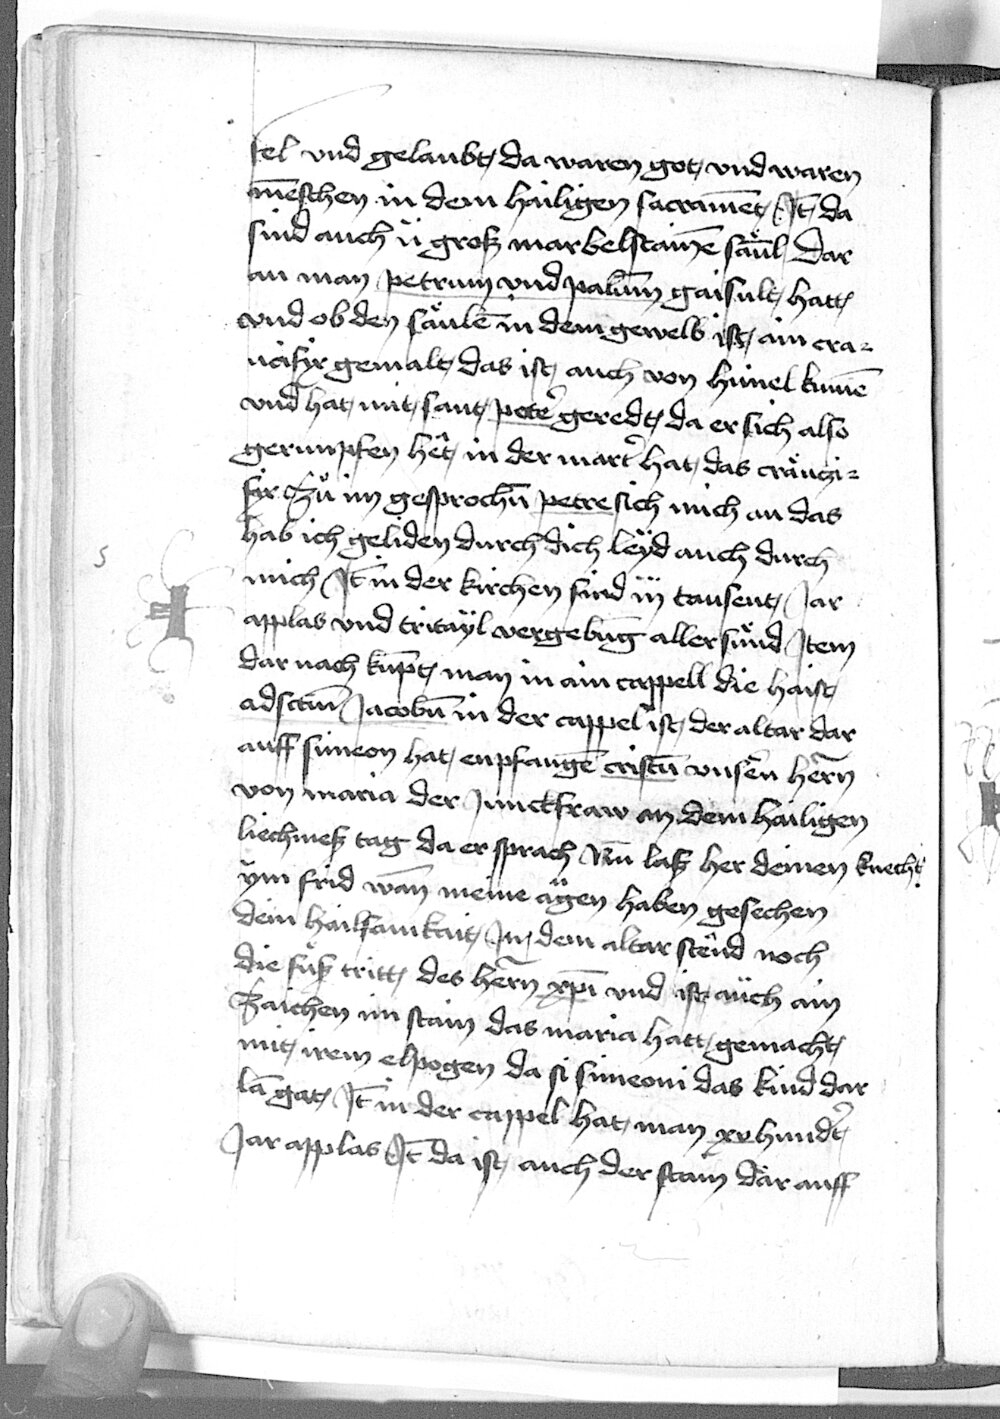 sel vnd gelaubt da waren got vnd waren
mēschen in dem hailigen sacramēt Jt̄ da
sind auch ij groß marbelstainē säul dar
an man petrum vnd palum̄ gaisult hatt
vnd ob den säulē in dem gewelb ist ain cra=
ucifix gemalt das ist auch von himel kumē
vnd hat mit sant peter geredt da er sich also
gerimpfen hêt in der marter hat das cräuczi=
fix zů im gesprochn̄ petre sich mich an das
hab ich geliden durch dich leÿd auch durch
mich Jt̄ in der kirchen sind iij tausent Jar
applas vnd tritäÿl vergebūg aller sünd Jtem
dar nach kūpt man in ain cappell die haist
ad sctm̄ Jacobū in der cappel ist der altar dar
auff simeon hat enpfangē cristū vnsern̄ herrn̄
von maria der Junckfraw an dem hailigen
liechmeß tag da er sprach Nū laß her deinen knecht
ym frid wan̄ meine äʒgen haben gesechen
dein hailsamkait Jn dem altar stênd noch
die fůß tritt des herrn̄ xp̄i vnd ist aüch ain
zaichen im stain das maria hatt gemacht
mit irem elpogen da si simeoni das kind dar
lā gat Jt̄ in der cappel hat man xv hundert
Jar applas Jt̄ da ist auch der stain där auff
5